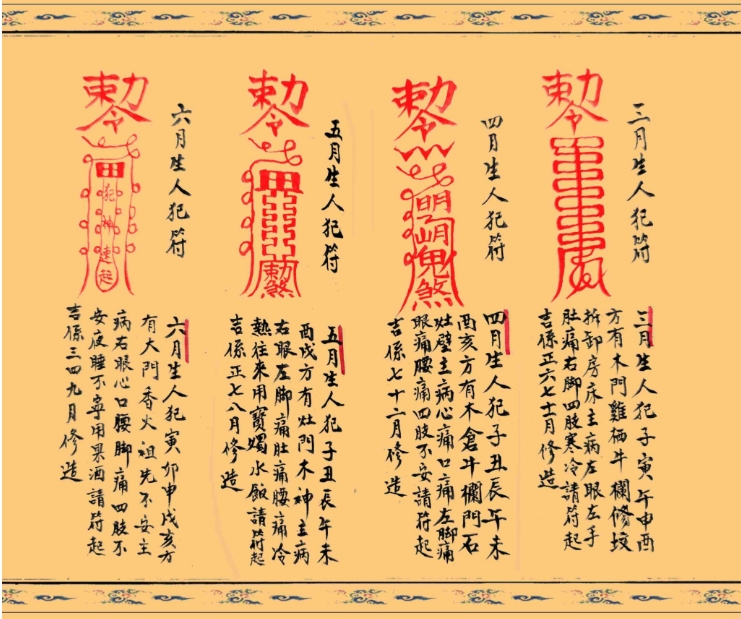 三月生人犯符
勅令
三月生人犯子寅午申酉
方有木門雞栖牛欄修坟
拆部房床主病左眼左手
肚痛右脚四肢寒冷請符起
吉係正六七十一月修造
四月生人犯符
勅令
鬼煞
四月生人犯子丑辰午未
酉亥方有木倉牛欄門石
灶壁主病心痛口痛左脚痛
眼痛腰痛四肢不安請符起
吉係七十二月修造
五月生人犯符
勅令
煞
五月生人犯子丑辰午未
酉戌方有灶門木神主病
右眼左脚痛肚痛腰痛冷
熱往來用寳燭水飯請符起
吉係正七八月修造
六月生人犯符
勅令
田
犯神速起
六月生人犯寅卯申戌亥方
有大門香火祖先不安主
病右眼心口腰脚痛四肢不
安夜睡不寧用果酒請符起
吉係三四九月修造